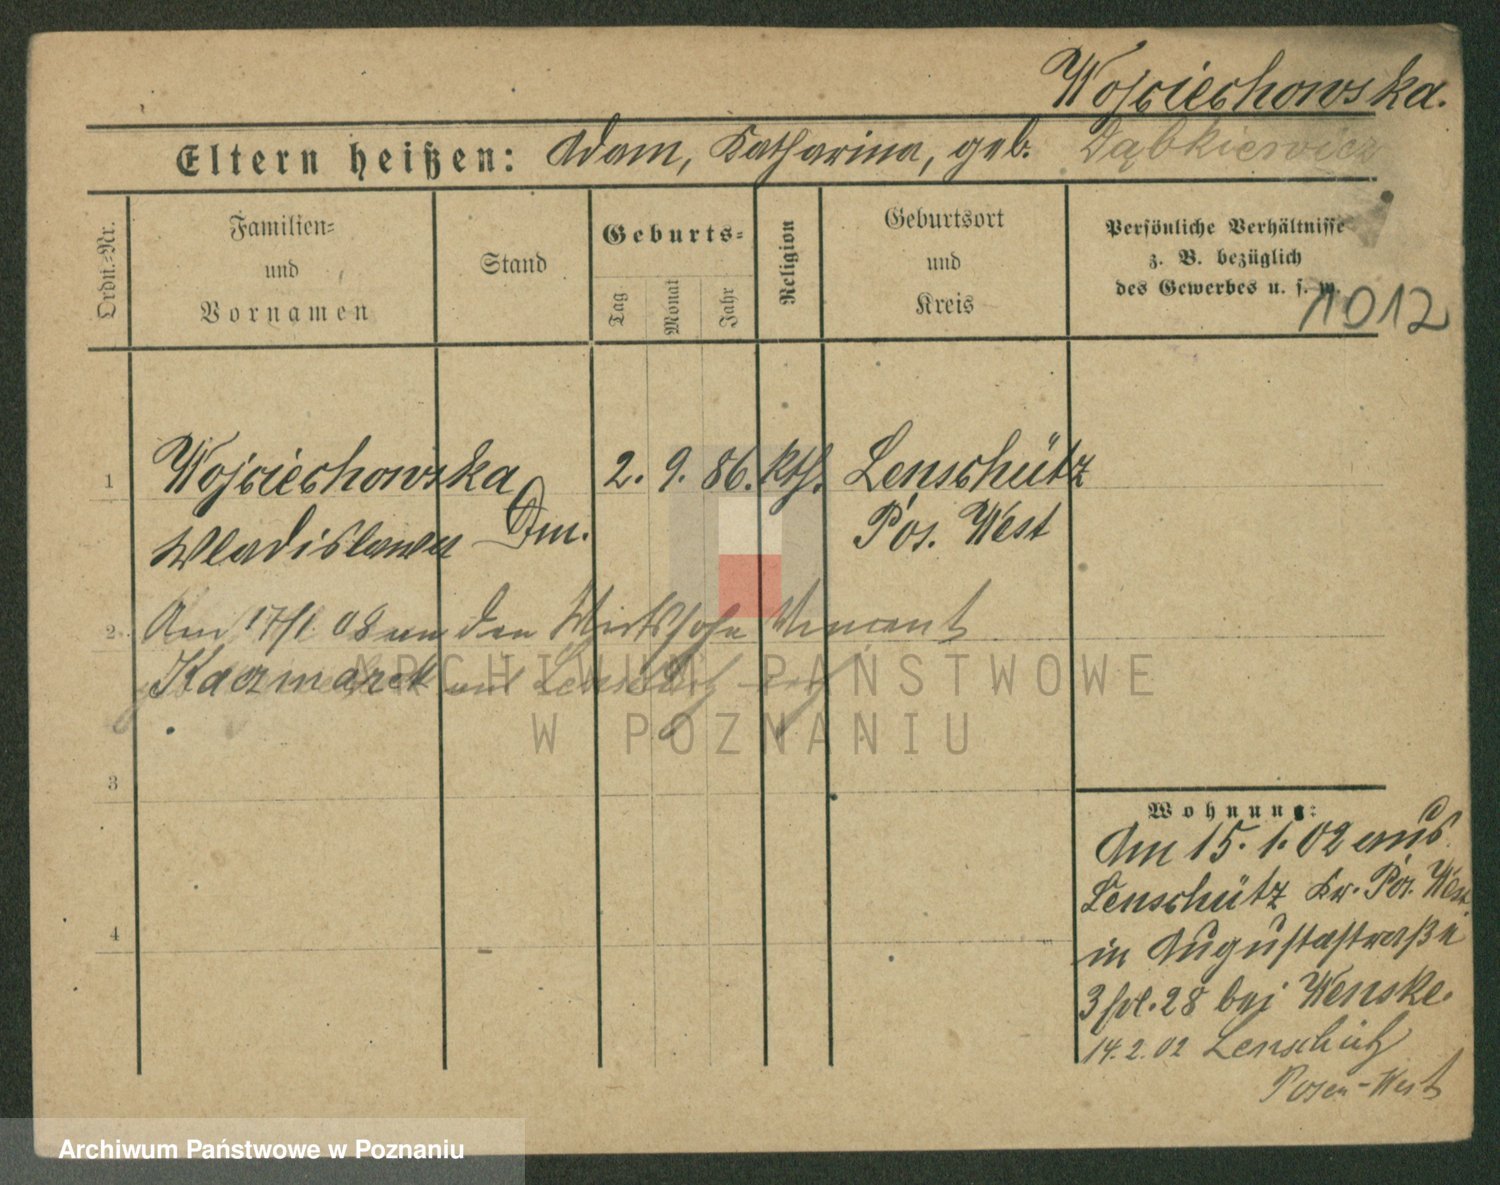 Wojciechowska.
Eltern heißen: Adam, Katharina, geb. Dąbkiewicz
Ordn.-Nr.
Familien-
und
Vornamen
Stand
Geburts-
Tag
Monat
Jahr
Religion
Geburtsort
und
Kreis
Persönliche Verhältnisse
z. B. bezüglich
des Gewerbes u. s. w.
1012
1 Wojciechowska 2. 9. 86. kth. Lenschütz
Wladislawa Dm. Pos. West
2 Am 17/1 08 an den Wirtssohn Vincent
Kaczmarek
3
4
Wohnung:
Am 15. 1. 02 aus
Lenschütz Kr. Pos. West
in Augustastraße
3 fol. 28 bei Wenske.
14. 2. 02 Lenschütz
Posen-West
ARCHIWUM PAŃSTWOWE
W POZNANIU
Archiwum Państwowe w Poznaniu